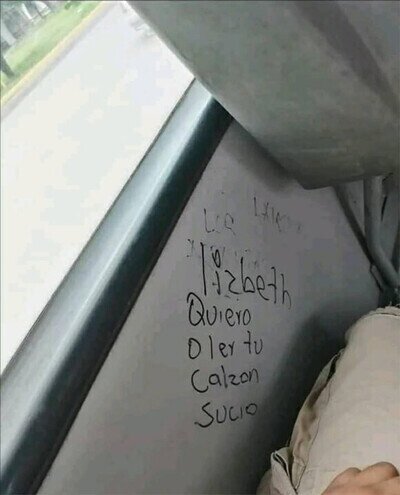 lizbeth
Quiero
Oler tu
Calzon
Sucio